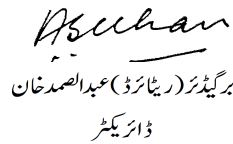 برگیڈئر (ریٹائرڈ) عبدالصمد خان
ڈائریکٹر